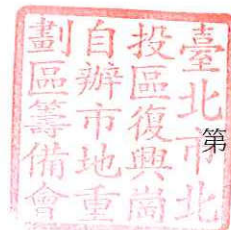 臺北市北
投區復興崗
自辦市地重
劃區籌備會
第